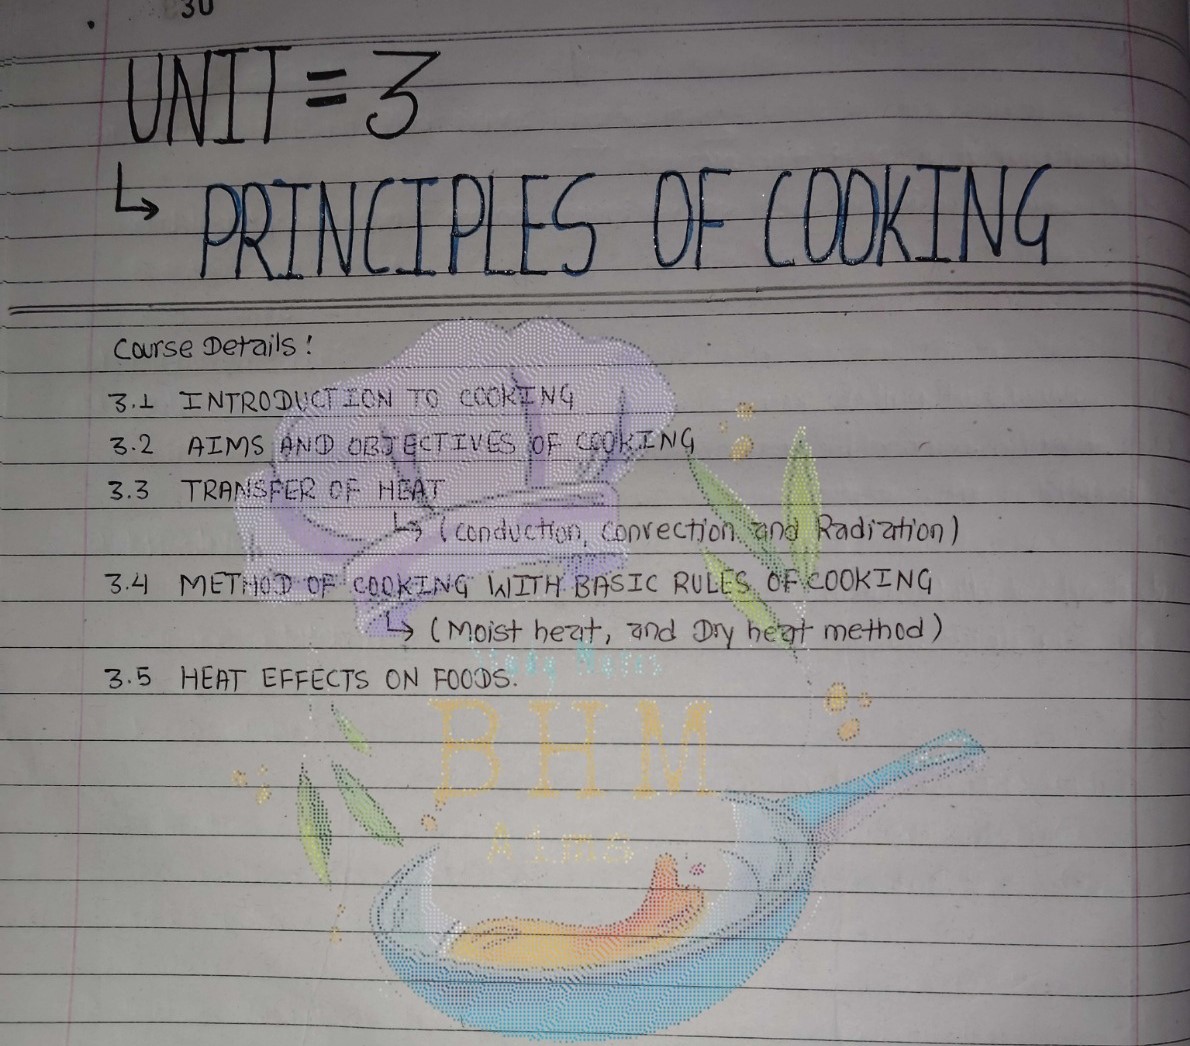 30
UNIT = 3
↳ PRINCIPLES OF COOKING
Course Details!
3.1 INTRODUCTION TO COOKING
3.2 AIMS AND OBJECTIVES OF COOKING
3.3 TRANSFER OF HEAT
↳ (conduction, convection and Radiation)
3.4 METHOD OF COOKING WITH BASIC RULES OF COOKING
↳ (Moist heat, and Dry heat method)
3.5 HEAT EFFECTS ON FOODS.
BHM